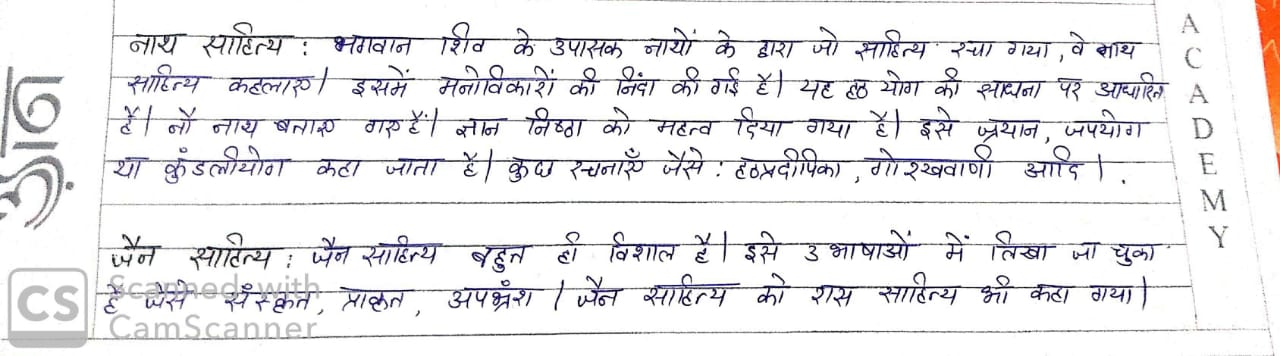 नाथ साहित्य : भगवान शिव के उपासक नाथों के द्वारा जो साहित्य रचा गया, वे नाथ
साहित्य कहलाए। इसमें मनोविकारों की निंदा की गई है। यह हठ योग की साधना पर आधारित
है। नौ नाथ बताए गए हैं। ज्ञान निष्ठा को महत्व दिया गया है। इसे प्रयान, जपयोग
या कुंडलीयोग कहा जाता है। कुछ रचनाएँ जैसे : हठप्रदीपिका, गोरखवाणी आदि।
जैन साहित्य : जैन साहित्य बहुत ही विशाल है। इसे 3 भाषाओं में लिखा जा चुका
है जैसे संस्कृत, प्राकृत, अपभ्रंश। जैन साहित्य को रास साहित्य भी कहा गया।
ACADEMY
CS Scanned with
CamScanner